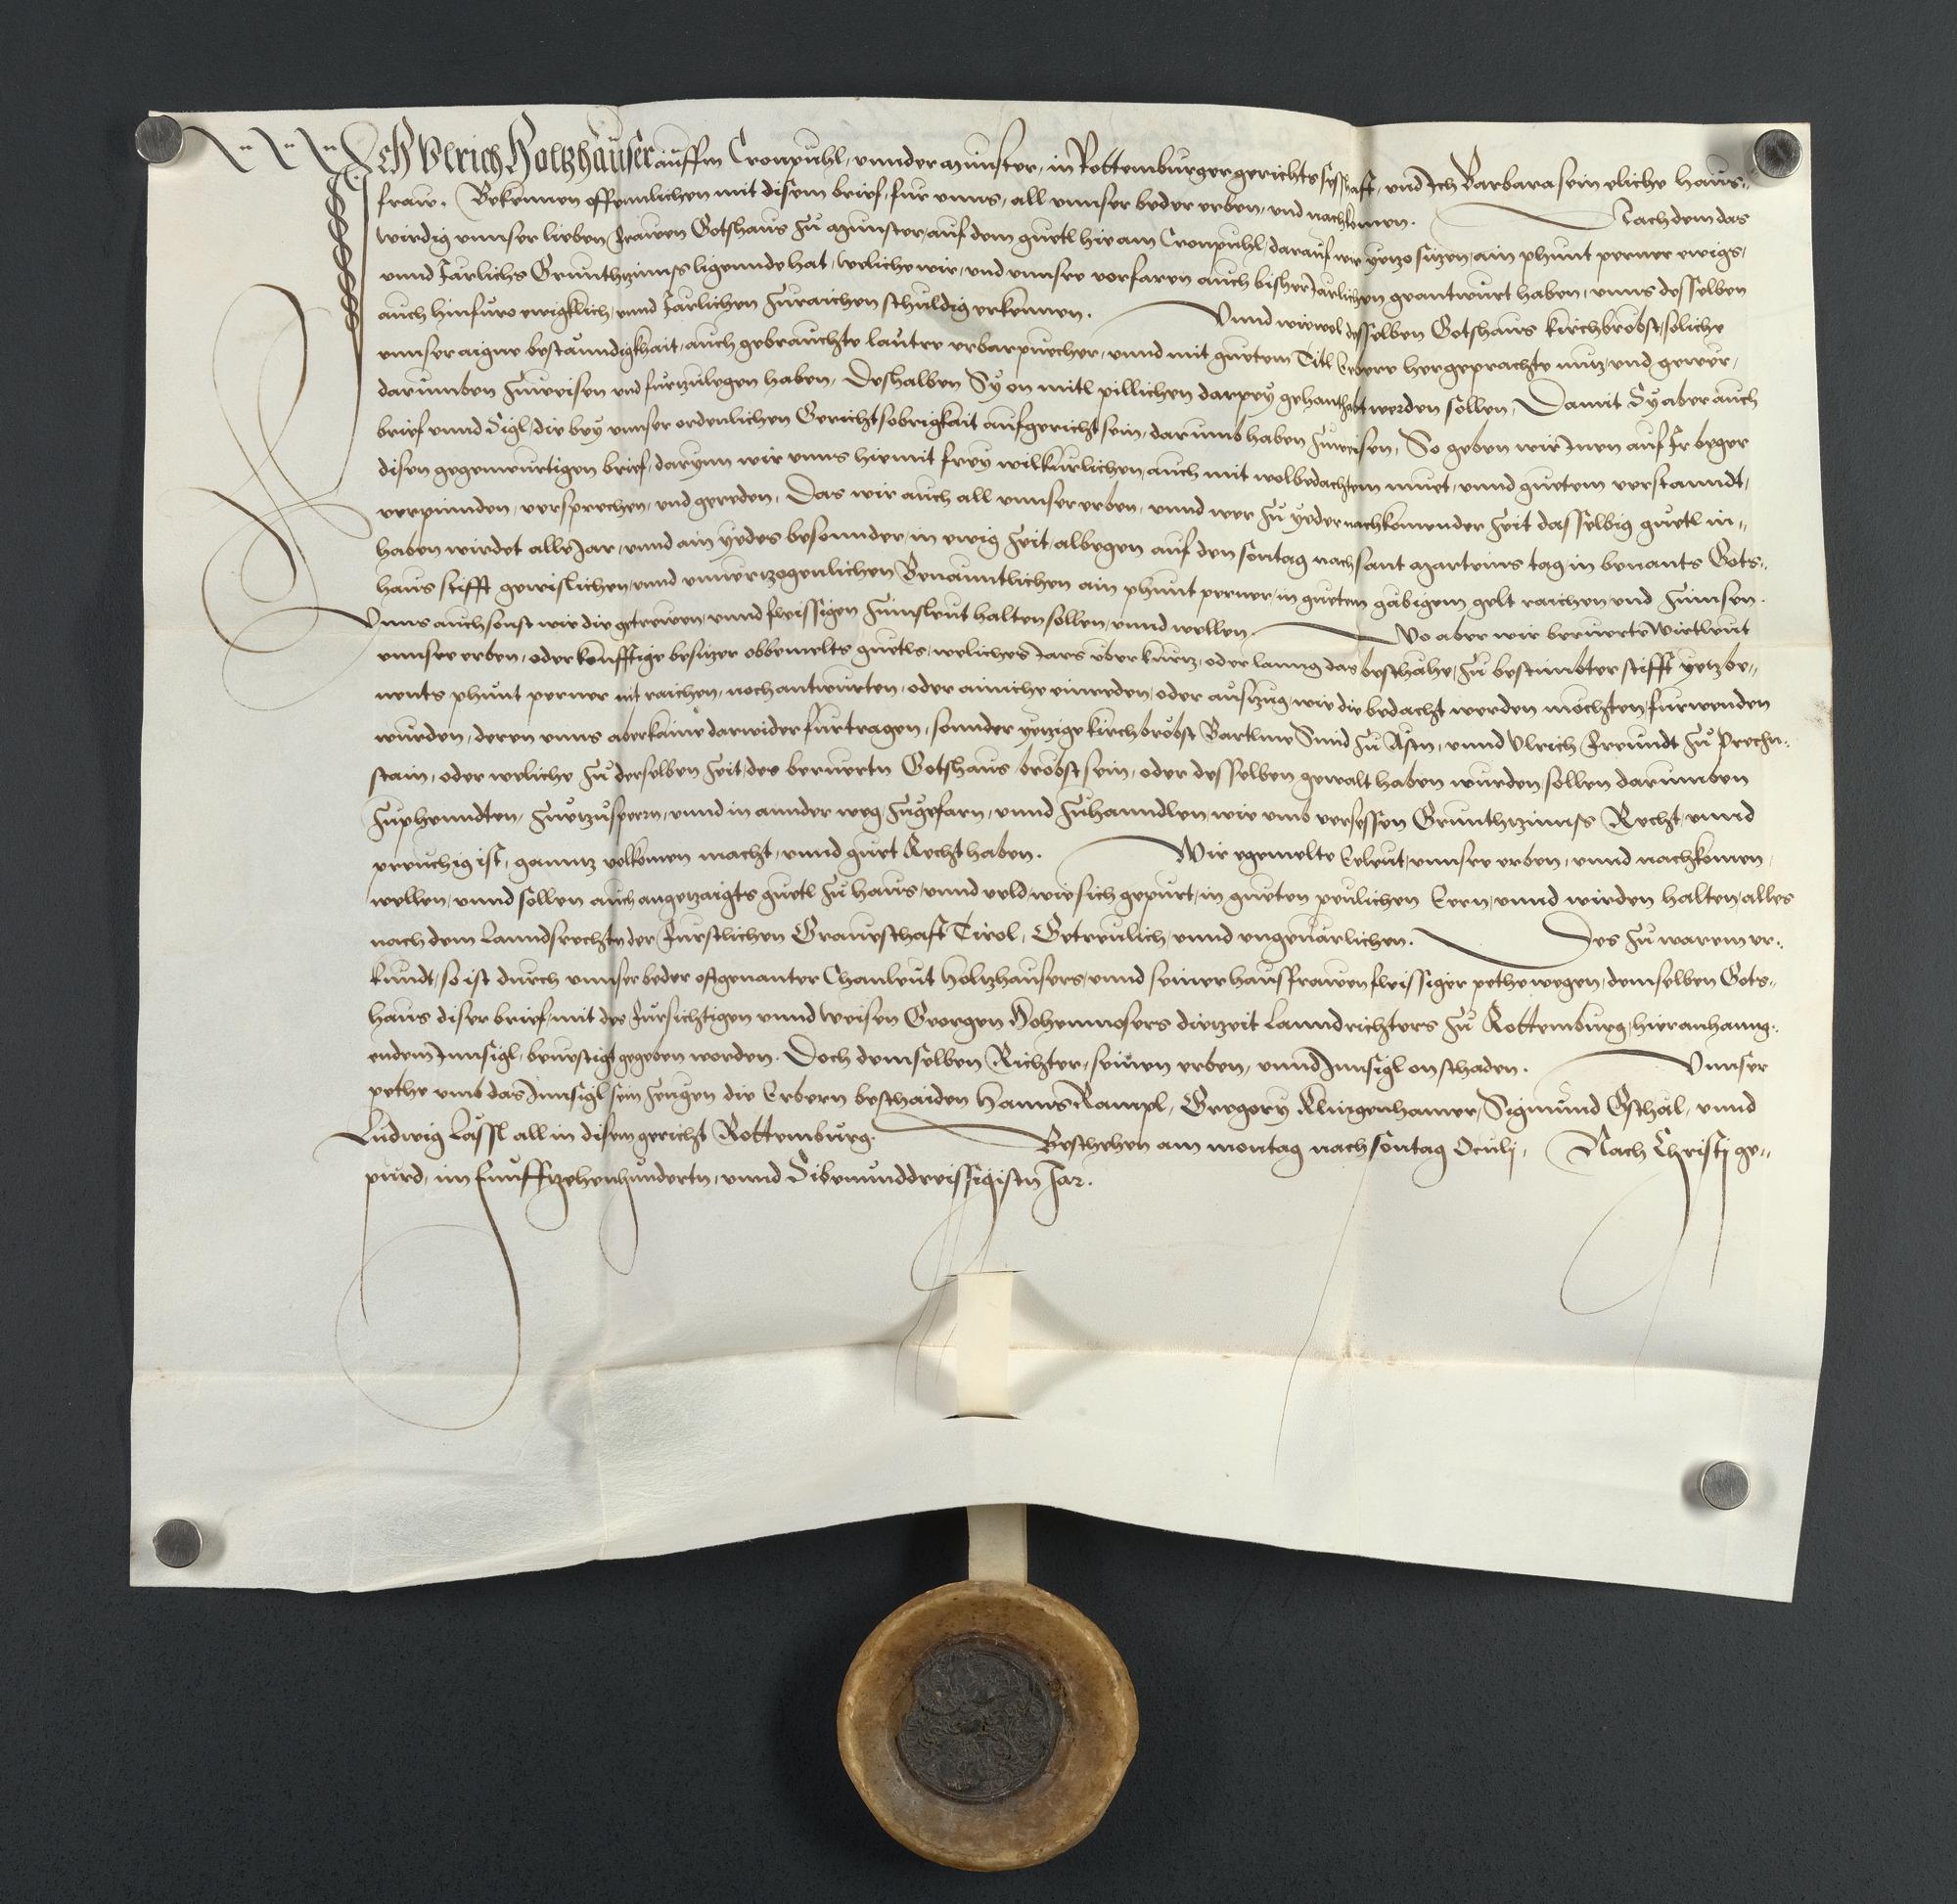 Ich Ulrich Holtzhauser auffm Cronpuhl, unnder Munster, in Rottemburger gerichts sesshaft, und Ich Barbara sein eliche haus-
fraw. Bekennen offennlichen mit disem brief, fur unns, all unnser beder erben, und nachkomen. Nachdem das
wirdig unnser lieben frawen Gotshaus zu Munster, auf dem guetl hie am Cronpuhl, darauf wir yetzo sitzen, ain phunt perner ewigs,
unnd Jarlichs Grunthzinnss ligennde hat, weliche wir, und unnsre vorfaren auch bisher Jarlichen geantwurt haben, unns desselben
auch hinfuro ewigklich, unnd Jarlichen zuraichen schuldig erkennen. Unnd wiewol desselben Gotshaus kirchbröbst, soliche
unnser aigne bestanndigkhait, auch gebrauchte lautre urbarpuecher, unnd mit guetem Titl Erbere hergeprachte nutz, und gewer,
darumben zuweisen und furtzulegen haben, Deshalben Sy on mitl pillichen darpey gehanthabt werden sollen, Damit Sy aber auch
brief unnd Sigl, die bey unnser ordenlichen Gerichtsobrigkait aufgericht sein, darumb haben zuweisen, So geben wir Inen auf Ir beger
disen gegenwurtigen brief, darynn wir unns hiemit frey wilkurlichen, auch mit wolbedachtem muet, unnd guetem verstanndt,
verpinnden, versprechen, und gereden, Das wir auch all unnser erben, unnd wer zu yeder nachkomender zeit dasselbig guetl in-
haben wirdet alle Jar, unnd ain yedes besonnder, in ewig zeit, albegen auf den sontag nach sant Marteins tag in benants Gots-
haus stifft gewislichen, unnd unvertzogenlichen Benanntlichen ain phunt perner, in guetem gäbigem gelt raichen und zinnsen.
Unns auch sonst wie die getrewen, unnd fleissigen zinsleut halten sollen, unnd wellen. Wo aber wir beruerte Wirtleut
unnsre erben, oder kunfftige besitzer obbemelts guetls, weliches Jars uber kurtz, oder lanng das beschähe, zu bestimbter stifft yetz be-
nents phunt perner nit raichen, noch antwurten, oder ainiche einreden, oder auszug, wie die bedacht werden möchten, furwenden
wurden, deren unns aber kaine darwider furtragen, sonnder yetzige kirchbröbst Bartlme Smid zu Asten, unnd Ulrich Freundt zu Precha-
stain, oder weliche zu derselben zeit, des beruertn Gotshaus bröbst sein, oder desselben gewalt haben wurden, sollen darumben
zuphenndten, zuvertzuspern, unnd in annder weg, zugefarn, unnd zuhanndlen, wie umb versessen Grunthzinnss Recht, unnd
preuchig ist, ganntz volkomen macht, unnd guet Recht haben. Wir egemelte Eeleut, unnsre erben, unnd nachkomen,
wellen, unnd sollen auch angetzaigts guetl zu haus, unnd veld, wie sich gepurt, in gueten peulichen Eern, unnd wirden halten, alles
nach dem Lanndsrechtn der Furstlichen Graveschaft Tirol, Getreulich, unnd ungevärlichen. Des zu warem ur-
kundt, so ist durch unnser beder oftgenanter Chanleut Holtzhausers, unnd seiner hausfrawen fleissiger pethe wegen, demselben Gots-
haus diser brief, mit des Fursichtigen unnd Weisen Georgen Hohenmosers dietzeit Lanndrichters zu Rottemburg, hieranhanng-
endem Innsigl, bevestigt gegeben worden. Doch demselben Richter, seinen erben, unnd Innsigl on schaden. Unnser
pethe umb das Innsigl sein zeugen die Erbern beschaiden Hanns Rampl, Gregory Klingenhamer, Sigmund Gschäl, unnd
Ludwig Lässl all in disem gericht Rottemburg. Beschehen am montag nach sontag Oculi, Nach Christi ge-
purd, im funfftzehenhundertn, unnd Sibenunddreissigistn Jar.